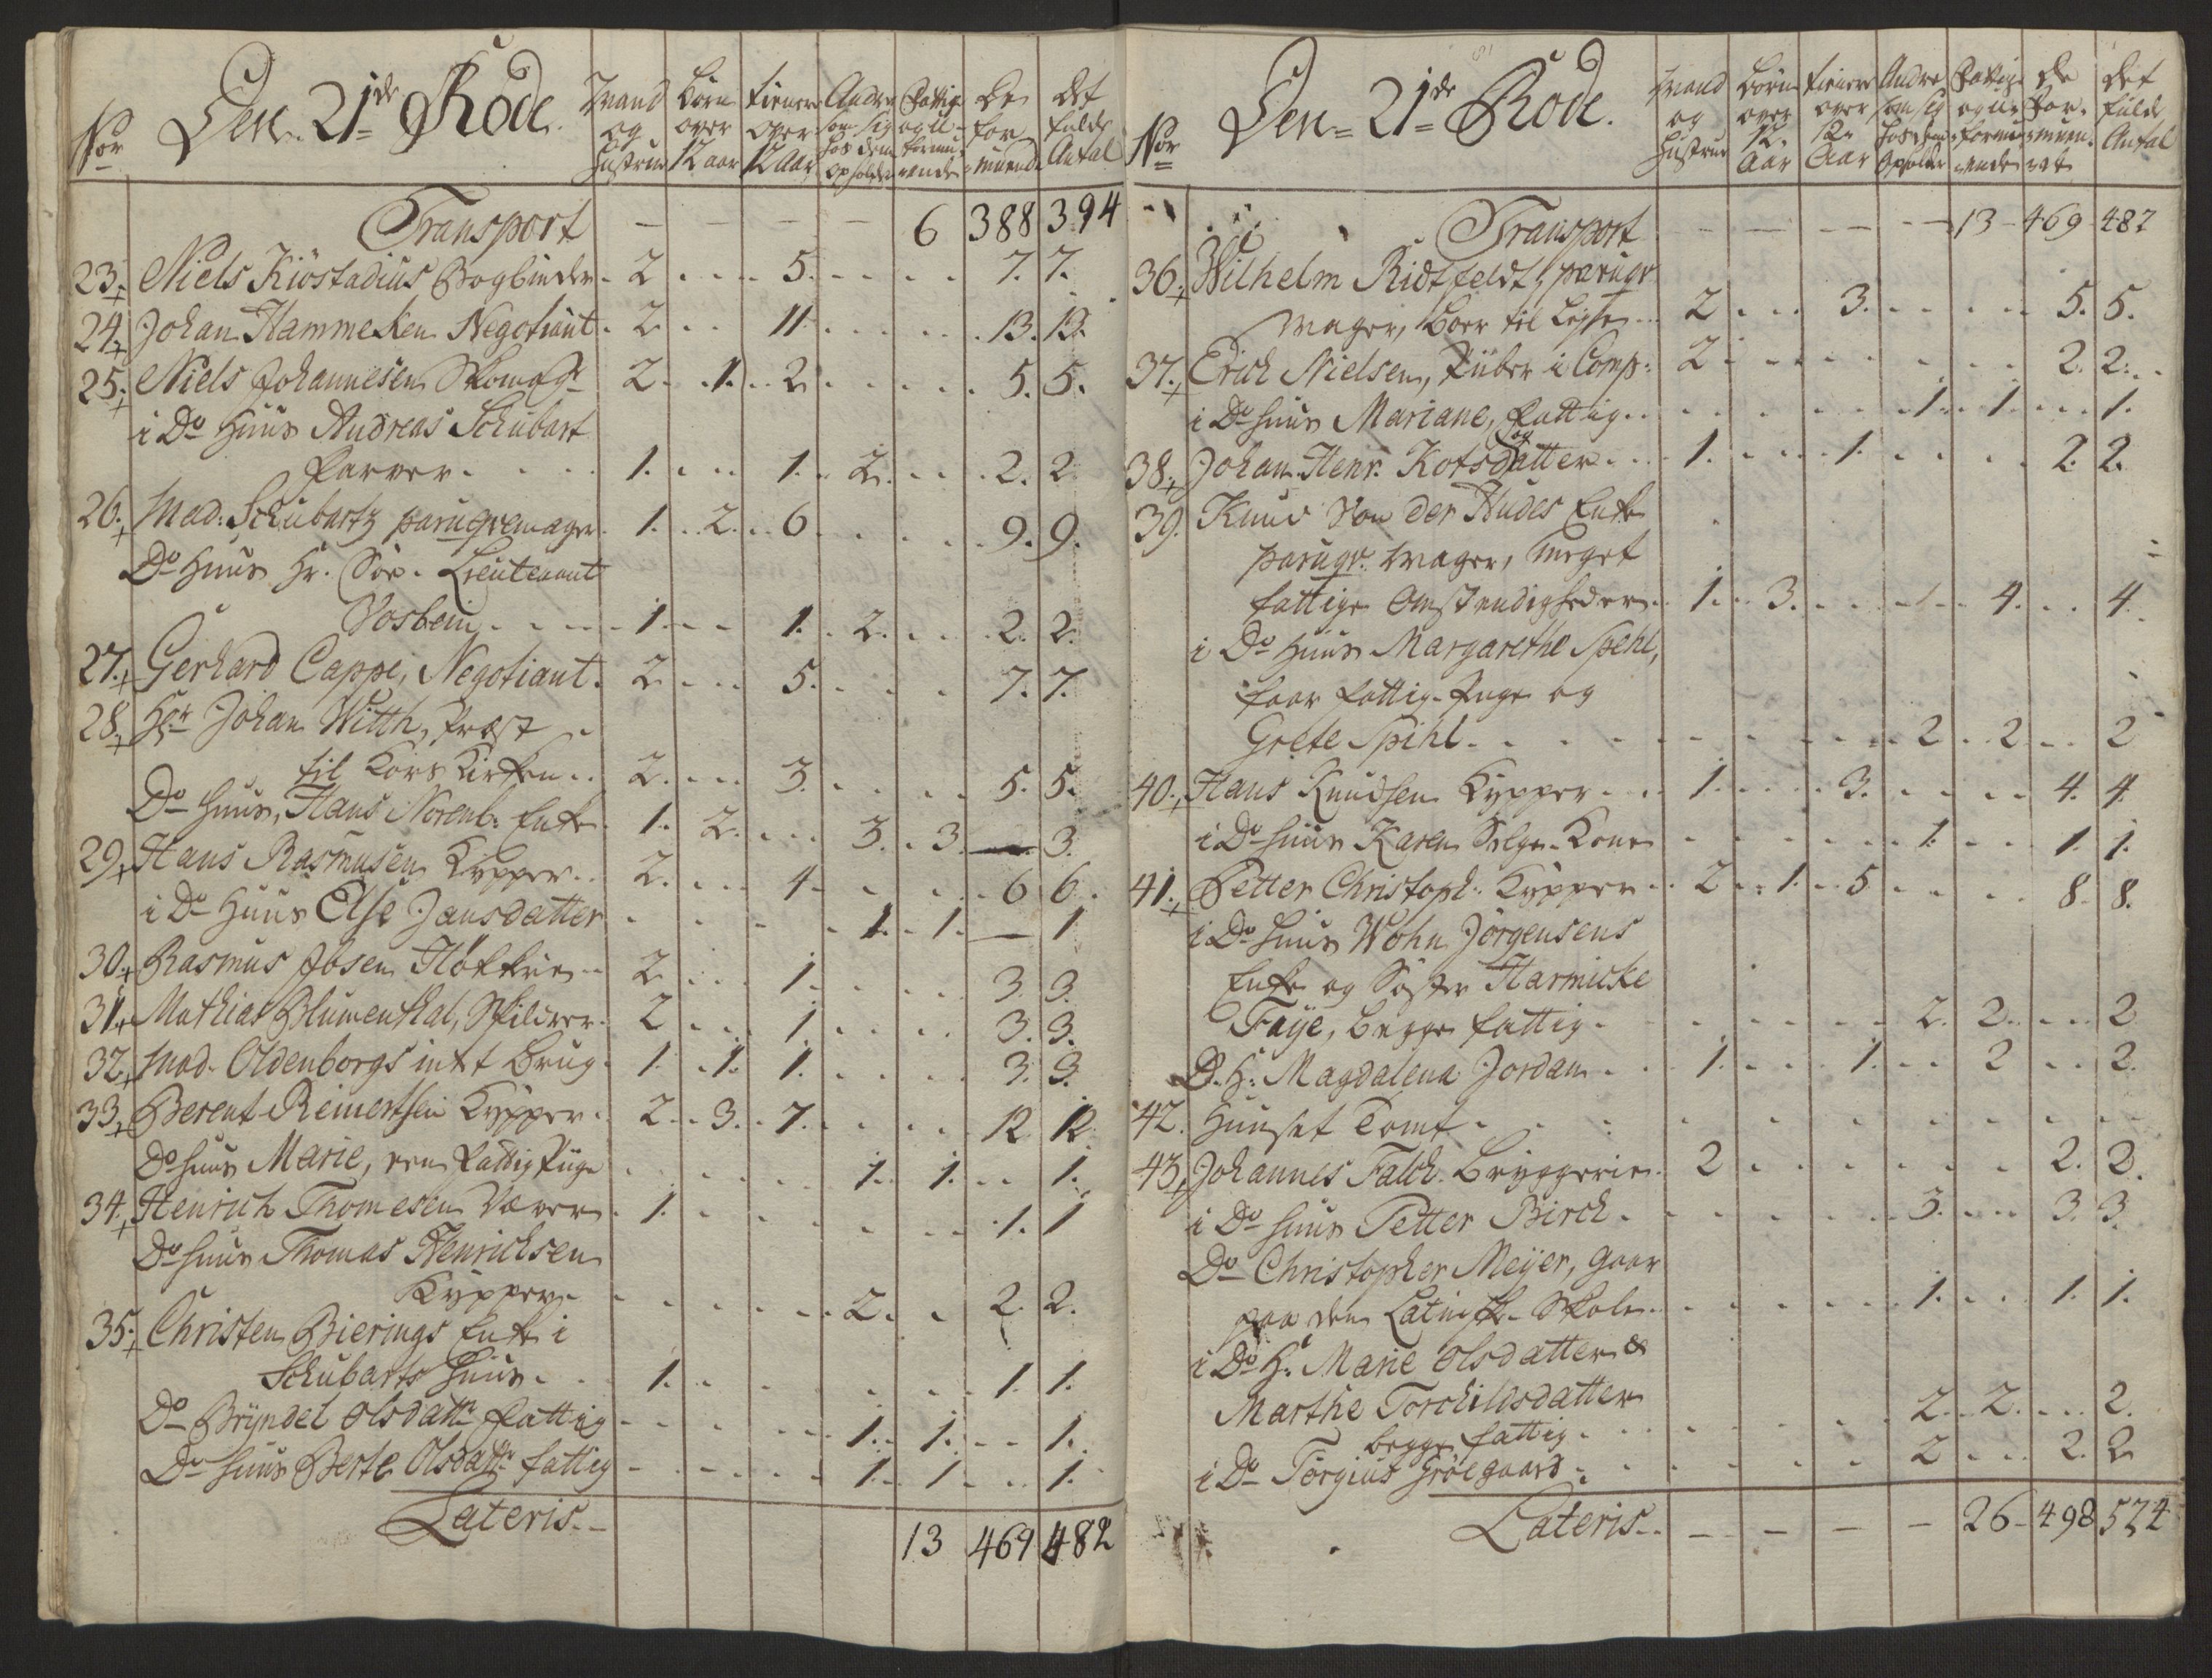 Nor Den 21de Rode. Mand og Hustrue Børn over 12 aar tienere over 12 Aar Andre som sig hos dem opholder Fattige og U-formuende De formuende det fulde Antal
Transport — — — — 6 388 394
23. Niels Kiøstadius Bogbinder 2 5. 7. 7.
24. Johan Hammeken Negotiant 2 11. 13. 13.
25. Niels Johannesen Skomagr 2. 1. 2. 5. 5.
i Do Huus Andreas Schubart
Farver 1. 1. 2. 2. 2
26. Mad: Schubartz parugvemager 1. 2. 6 9. 9.
Do Huus Hr. Søe-Lieutenant
Vosbein 1. 1. 2. 2. 2.
27. Gerhard Cappe, Negotiant. 2 5. 7. 7.
28. Hr Johan Witth, Præst
til Kors Kirken 2. 3. 5. 5.
Do Huus, Hans Norenb: Enke 1. 2. 3. 3. — 3.
29. Hans Rasmusen Kypper 2. 4 6 6.
i Do Huus Else Jansdatter 1. 1. — 1
30. Rasmus Ibsen Høkkrie 2 1. 3. 3.
31. Mathias Blumenthal, Skildrer 2 1. 3. 3.
32. Mad. Oldenborgs intet Brug 1. 1. 1. 3. 3.
33. Berent Reinertsen Kypper 2. 3. 7. 12 12.
Do Huus Marie, een Fattig Pige 1. 1. 1.
34. Henrich Thomesen Væver 1. 1. 1
Do Huus Thomas Henrichsen
Kypper 2. 2. 2.
35. Christen Bierings Enke i
Schubarts Huus 1. 1. 1.
Do Bryndel Olsdattr fattig 1. 1. 1.
Do Huus Berte Olsdattr fattig 1. 1 1.
Lateris. 13 469 482
Nor Den 21de Rode. Mand og Hustrue Børn over 12. Aar tienere over 12 Aar Andre som sig hos dem opholder Fattige og U-formuende De Formuende det fulde Antal
Transport — — — — 13 469 482
36. Wilhelm Ridtfeldt, parugv
mager, boer til Leye 2 3. 5. 5.
37. Erich Nielsen, Kuber i Comp: 2 2. 2.
i Do Huus Mariane, fattig 1. 1. 1.
38. Johan Henr. Kotsdatter 1. 1. 2. 2.
39. Knud Von der Hudes Enke
parugv. mager, meget
fattige Omstendigheder 1. 3. 4. 4.
i Do Huus Margarethe Spehl,
faar fattig-Penge og
Grete Spihl 2 2 2
40. Hans Knudsen Kypper 1. 3. 4. 4.
i Do Huus Karen Selge-Kone 1. 1. 1.
41. Petter Christoph: Kypper 2 1. 5. 8. 8.
i Do Huus Wohn Jørgensens
Enke og Søster Harmicke
Faye, begge fattig 2. 2. 2
D. H: Magdalena Jordan 1. 1. 2 2.
42. Huuset Tomt
43. Johannes Falch Bryggerie 2 2. 2.
i Do Huus Petter Birch 3. 3. 3.
Do Christopher Meyer, gaar
paa den Latinske Skole 1. 1. 1.
i Do H: Marie Olsdatter &
Marthe Torchilsdatter
begge fattig 2. 2. 2.
i Do Torgius Grøegaard 2 2. 2
Lateris. — — — — 26 498 524